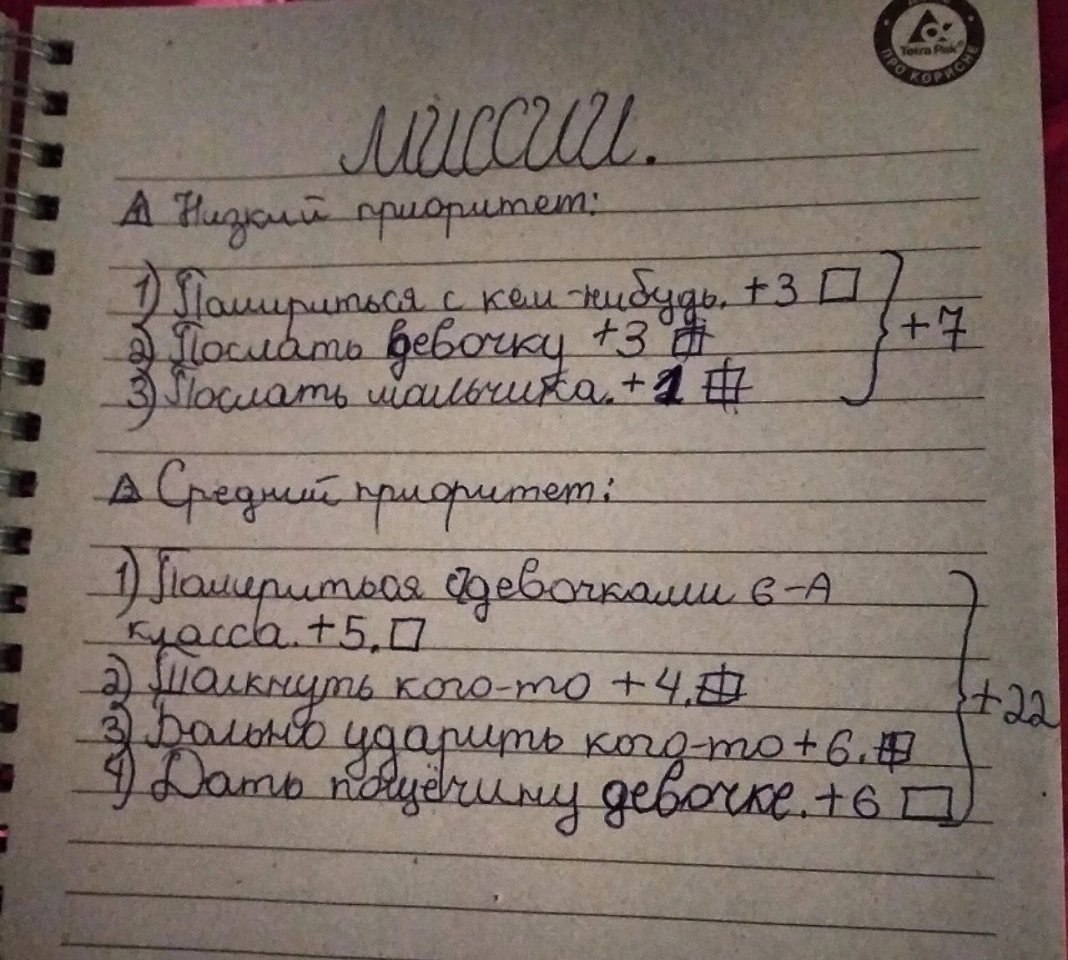 Tetra Pak®
ПРО КОРИСНЕ
Миссии.
Низкий приоритет:
1) Помириться с кем-нибудь. +3
2) Послать девочку +3
3) Послать мальчика. +1
+7
Средний приоритет:
1) Помириться с девочками 6-А
класса. +5.
2) Толкнуть кого-то +4.
3) Больно ударить кого-то +6.
4) Дать пощёчину девочке. +6
+22